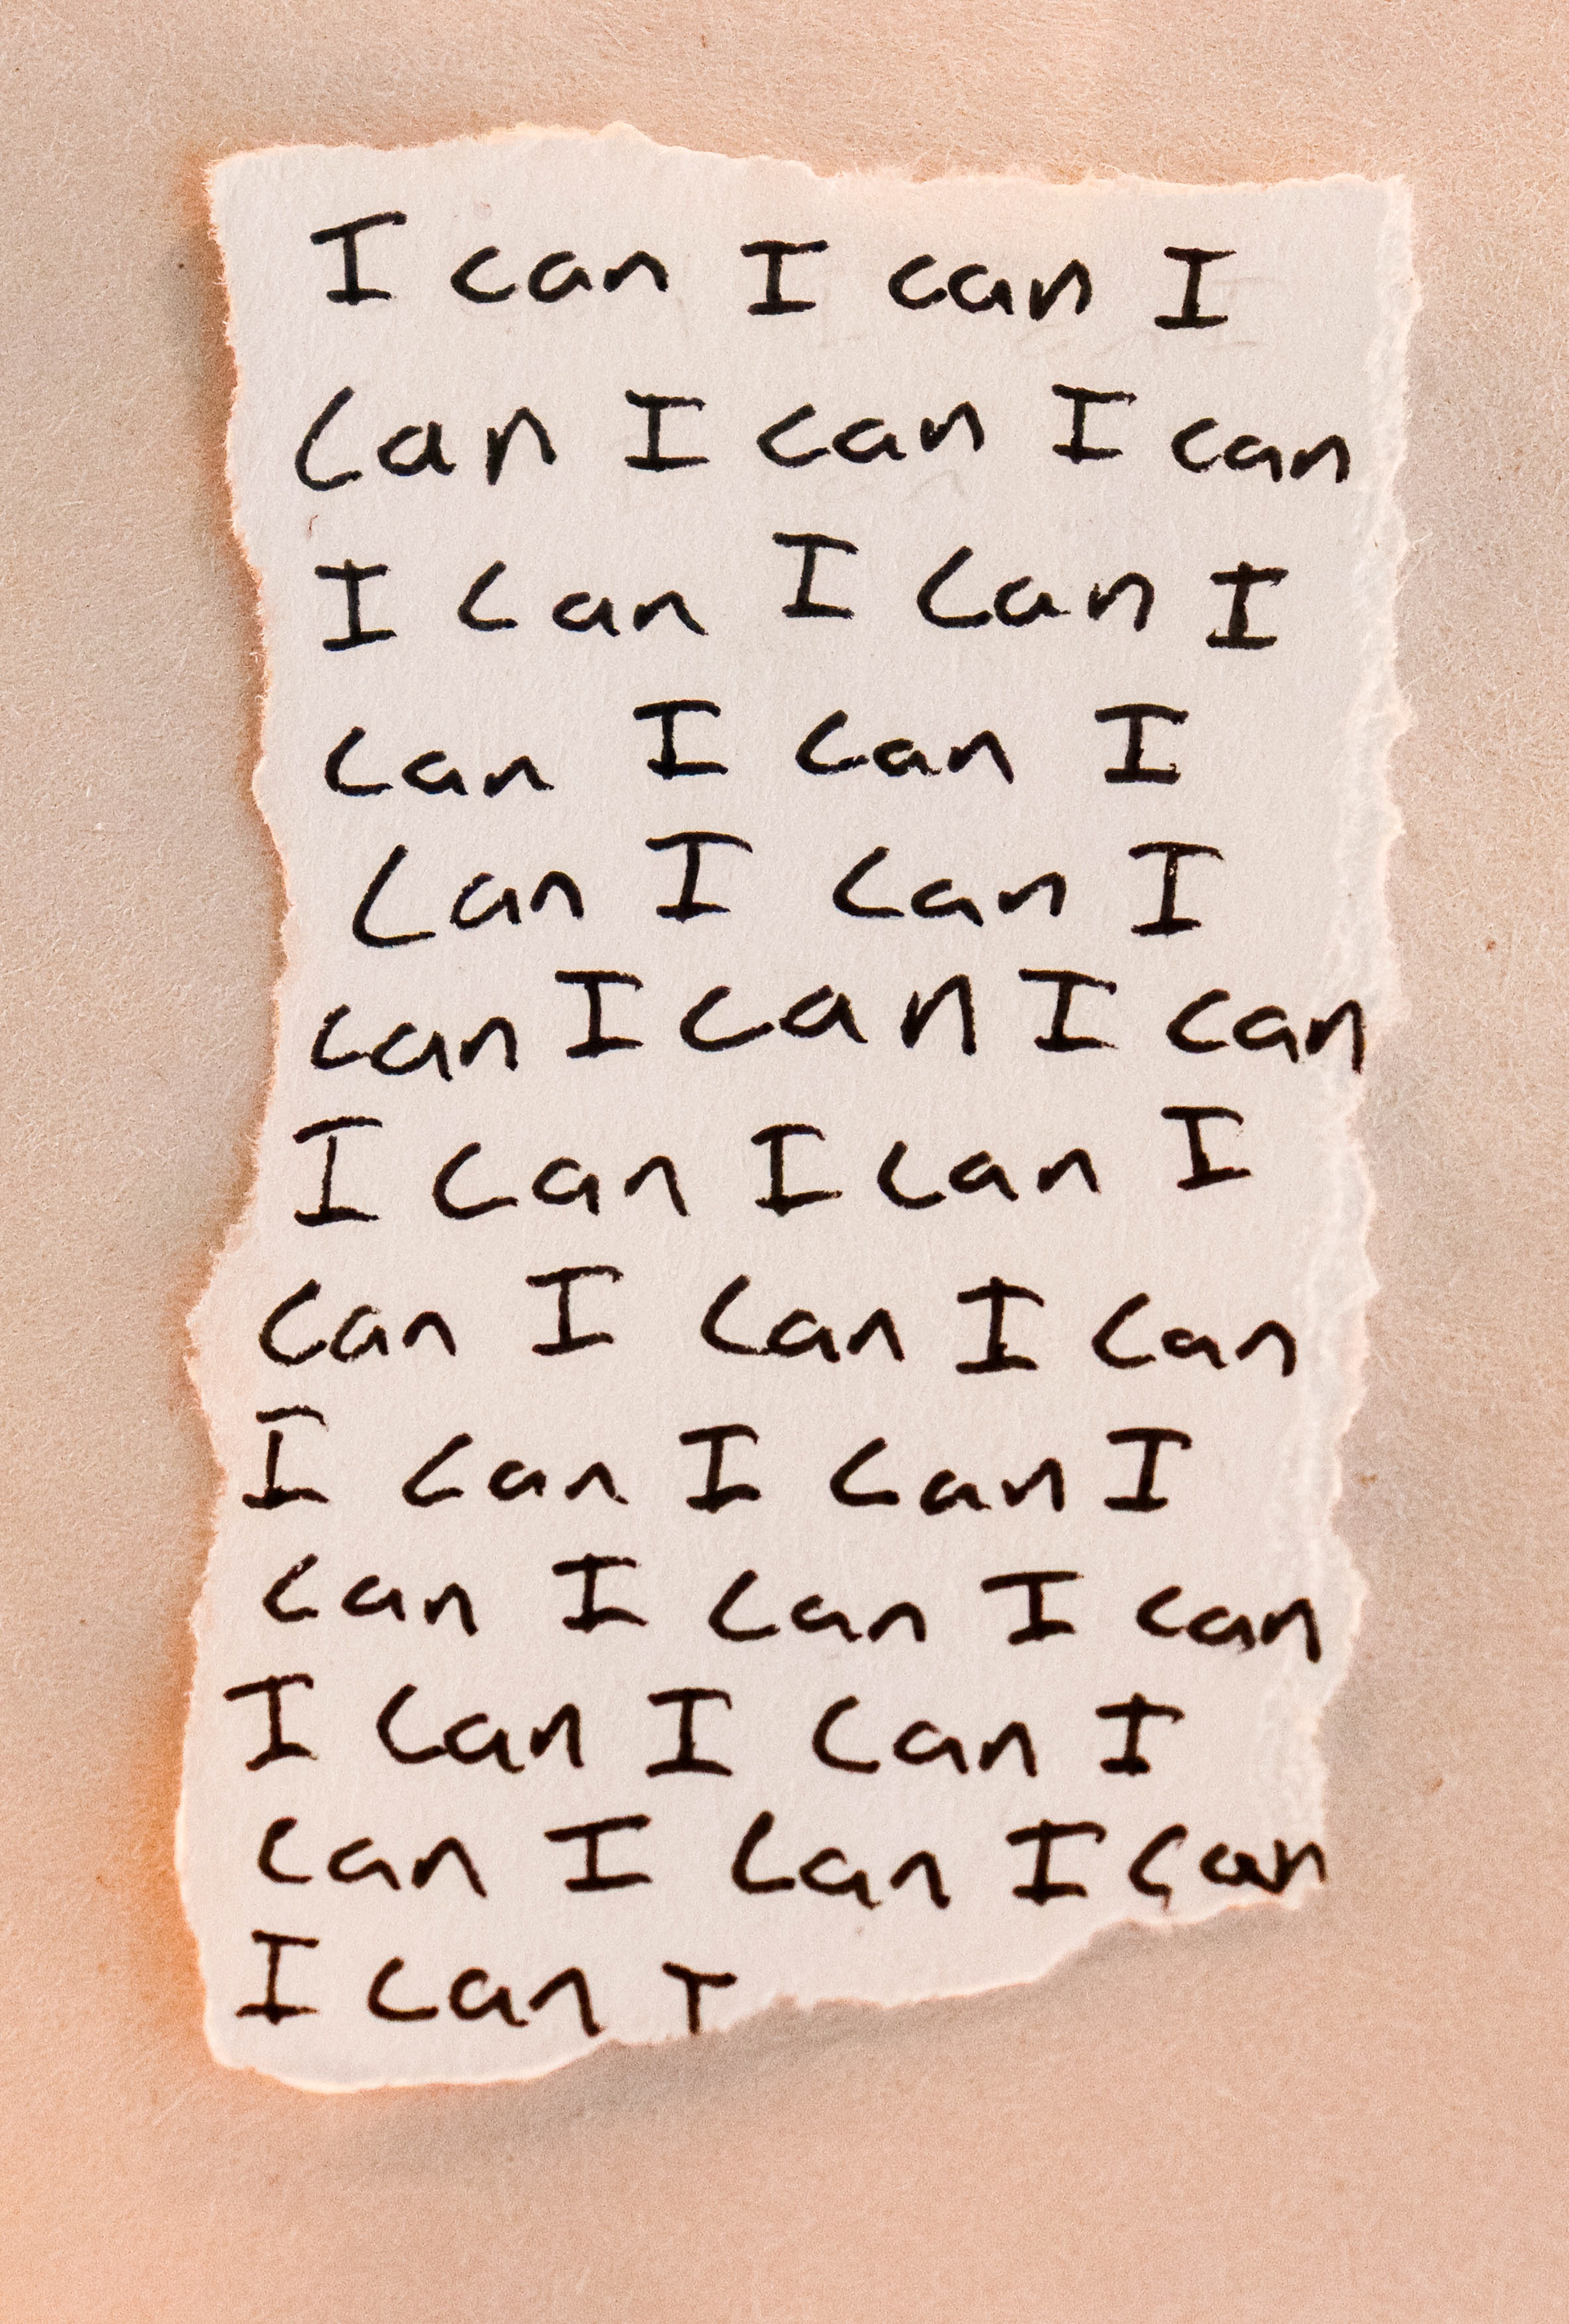 I can I can I
can I can I can
I can I can I
can I can I
can I can I
can I can I can
I can I can I
can I can I can
I can I can I
can I can I can
I can I can I
can I can I can
I can I